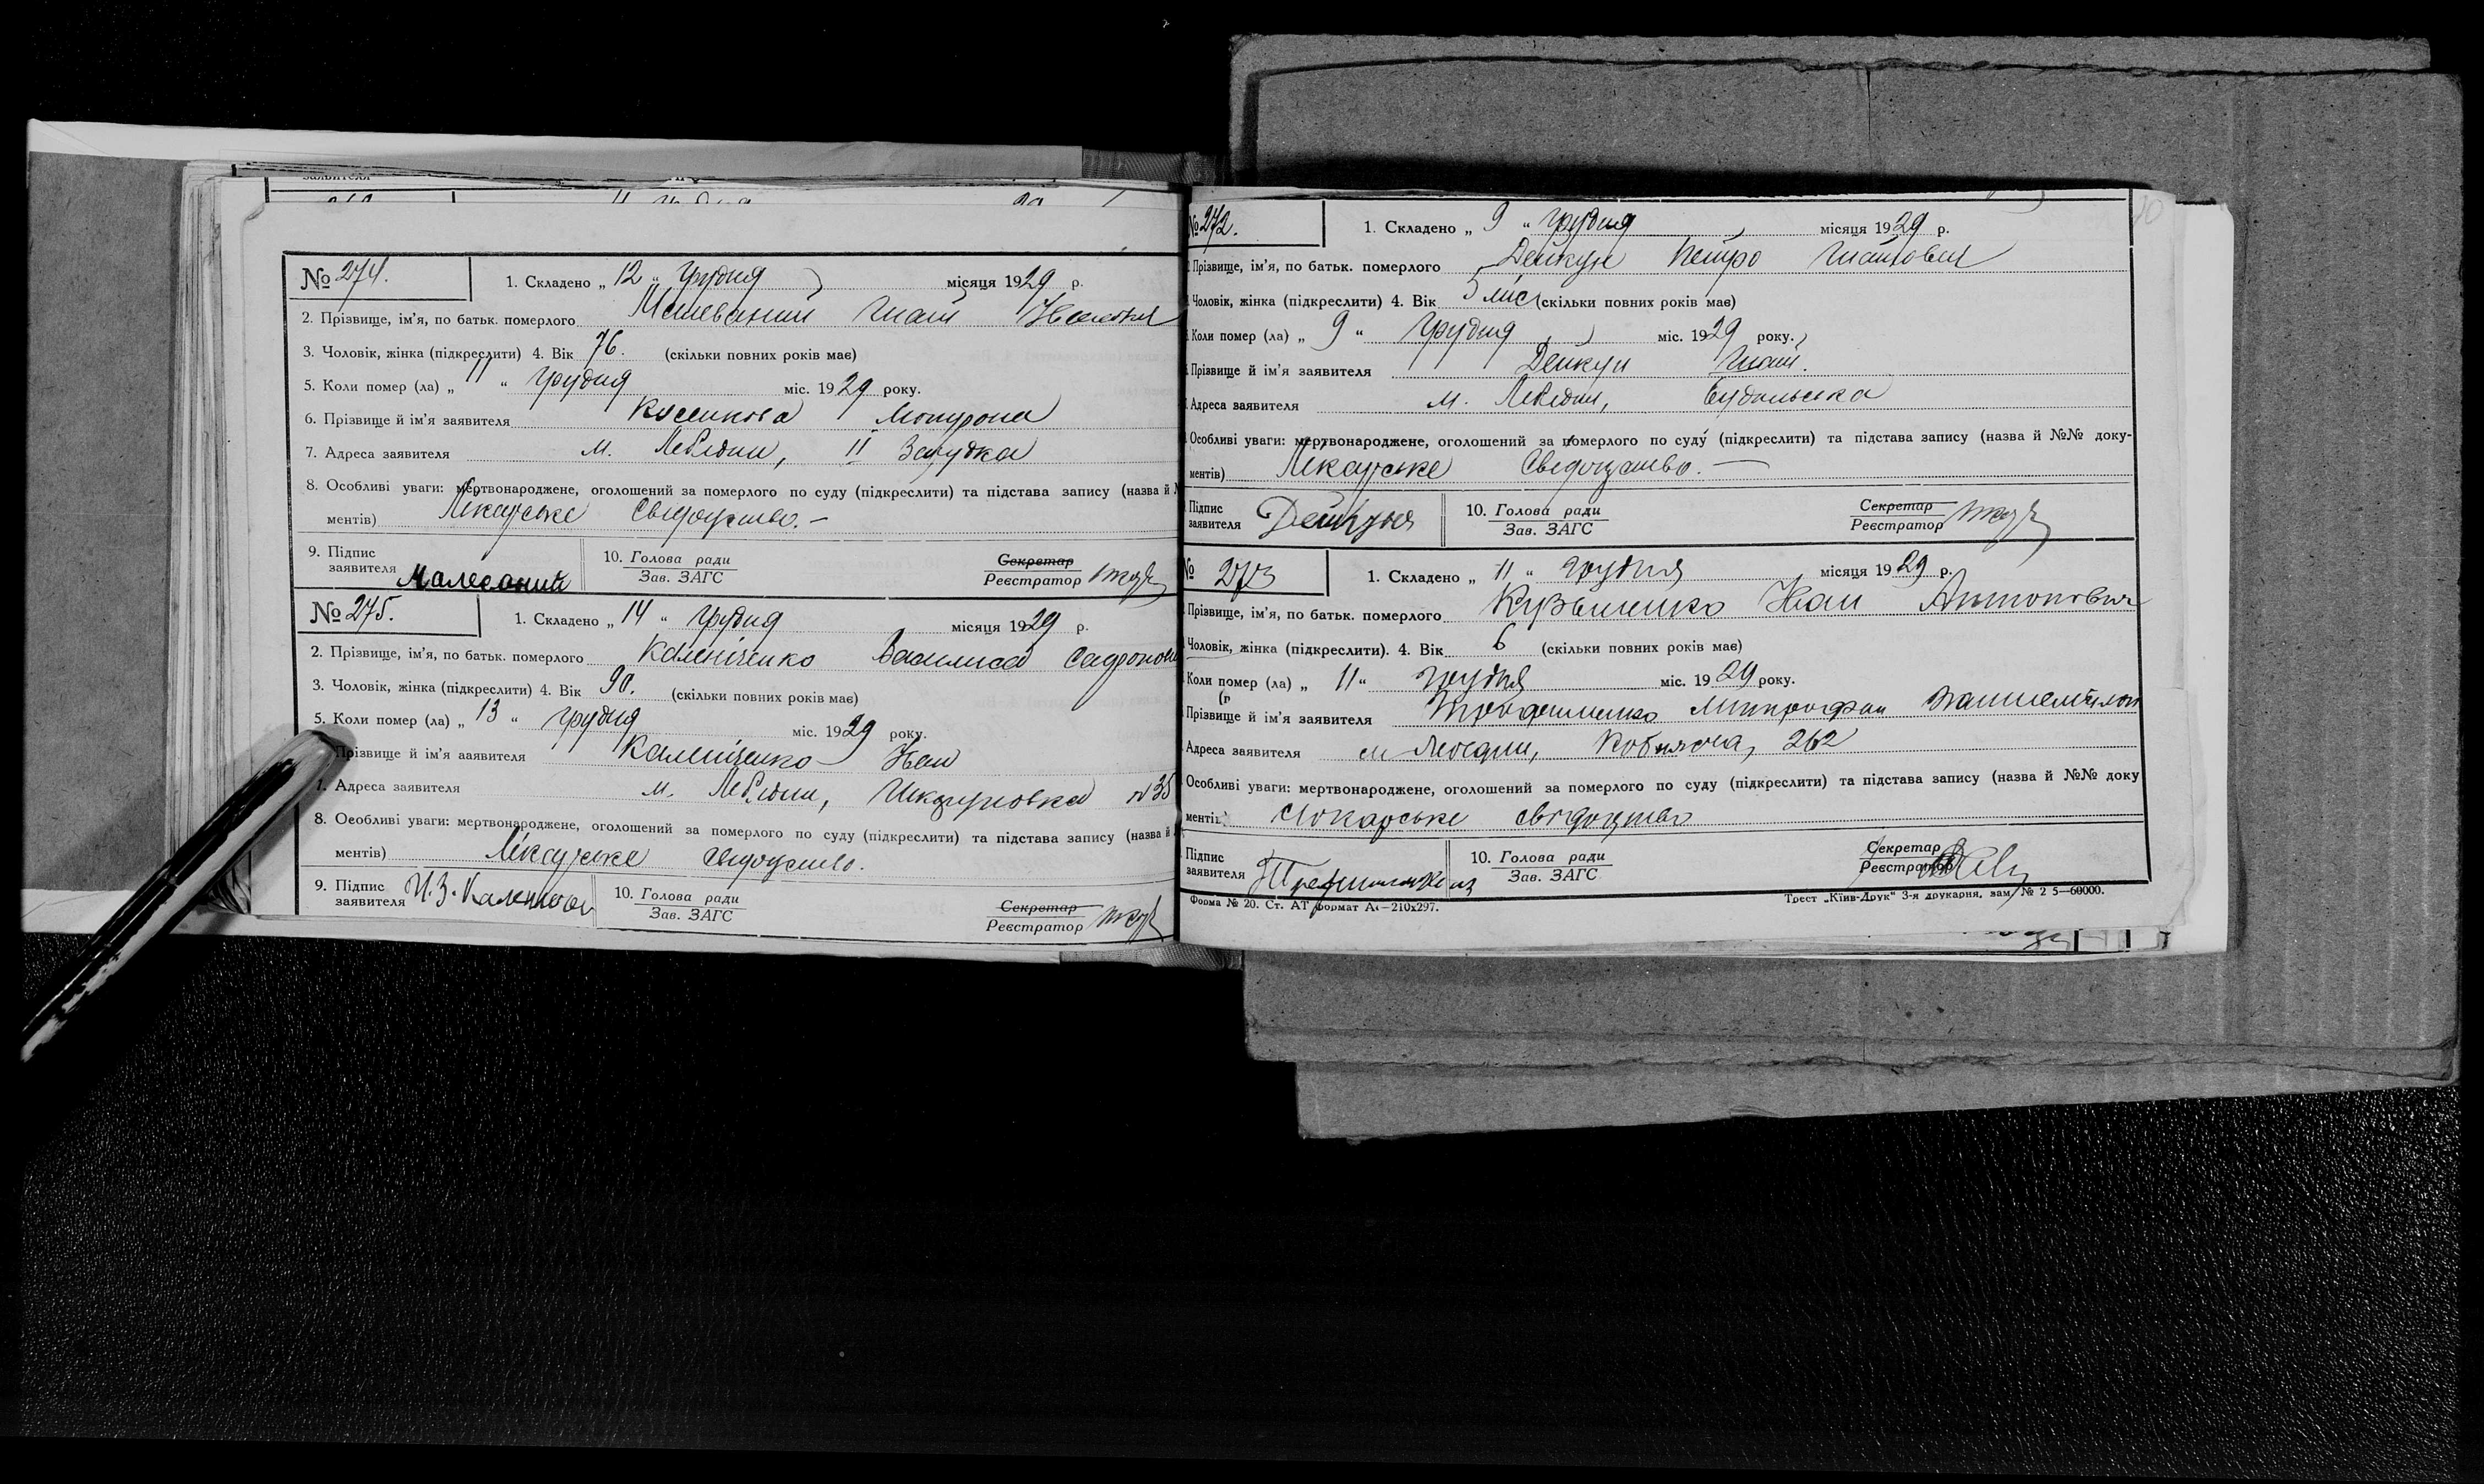 № 274. 1. Складено „ 12 “ Грудня місяця 1929 р.
2. Прізвище, ім'я, по батьк. померлого Малеваний Гнат
3. Чоловік, жінка (підкреслити) 4. Вік 76. (скільки повних років має)
5. Коли помер (ла) „ 11 “ Грудня міс. 1929 року.
6. Прізвище й ім'я заявителя Мотрона
7. Адреса заявителя м. Лебедин, II Зарудка
8. Особливі уваги: мертвонароджене, оголошений за померлого по суду (підкреслити) та підстава запису (назва й
ментів) Лікарське Свідоцтво. –
9. Підпис заявителя Малеваний 10. Голова ради Зав. ЗАГС Секретар Реєстратор
№ 275. 1. Складено „ 14 “ Грудня місяця 1929 р.
2. Прізвище, ім'я, по батьк. померлого Каленіченко Василиса
3. Чоловік, жінка (підкреслити) 4. Вік 90. (скільки повних років має)
5. Коли помер (ла) „ 13 “ Грудня міс. 1929 року.
Прізвище й ім'я заявителя Каленіченко Іван
7. Адреса заявителя м. Лебедин, №35
8. Особливі уваги: мертвонароджене, оголошений за померлого по суду (підкреслити) та підстава запису (назва й
ментів) Лікарське Свідоцтво.
9. Підпис заявителя 10. Голова ради Зав. ЗАГС Секретар Реєстратор
№ 272. 1. Складено „ 9 “ Грудня місяця 1929 р.
Прізвище, ім'я, по батьк. померлого Дейкун Петро Гнатович
Чоловік, жінка (підкреслити) 4. Вік 5 міс (скільки повних років має)
Коли помер (ла) „ 9 “ Грудня міс. 1929 року.
Прізвище й ім'я заявителя Дейкун Гнат.
Адреса заявителя м. Лебедин, Будильська
Особливі уваги: мертвонароджене, оголошений за померлого по суду (підкреслити) та підстава запису (назва й №№ доку-
ментів) Лікарське Свідоцтво. —
Підпис заявителя Дейкун 10. Голова ради Зав. ЗАГС Секретар Реєстратор
№ 273 1. Складено „ 11 “ Грудня місяця 1929 р.
Прізвище, ім'я, по батьк. померлого Кузьменко Іван Антонович
Чоловік, жінка (підкреслити). 4. Вік 6 (скільки повних років має)
Коли помер (ла) „ 11 “ Грудня міс. 1929 року.
Прізвище й ім'я заявителя Митрофан
Адреса заявителя м Лебедин, 262
Особливі уваги: мертвонароджене, оголошений за померлого по суду (підкреслити) та підстава запису (назва й №№ доку
ментів Лікарське свідоцтво
Підпис заявителя 10. Голова ради Зав. ЗАГС Секретар Реєстратор
Форма № 20. Ст. АТ формат А4—210х297. Трест „Київ-Друк“ 3-я друкарня, зам. № 2 5—60000.